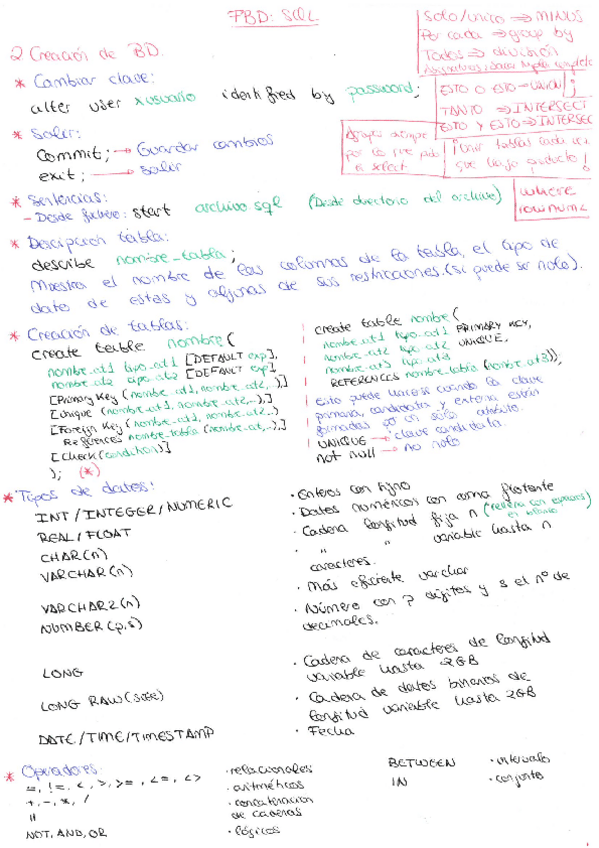 FBD: SQL
Solo/único ⇒ MINUS
Por cada ⇒ group by
Todos ⇒ división
ESTO O ESTO → UNION
TANTO ⇒ INTERSECT
ESTO Y ESTO ⇒ INTERSEC
Agrupar siempre
por lo que pide
el select
"Unir tablas cada vez
que hago producto!
where
rownum=
2 Creación de BD.
* Cambiar clave:
alter user xusuario identified by password;
* Salir:
commit; → Guardar cambios
exit; → salir
* Sentencias:
- Desde fichero: start archivo.sql (Desde directorio del archivo)
* Descripción tabla:
describe nombre_tabla;
Muestra el nombre de las columnas de la tabla, el tipo de
dato de estas y algunas de sus restricciones. (si puede ser nulo).
* Creación de tablas:
create table nombre (
nombre_at1 tipo_at1 [DEFAULT exp],
nombre_at2 tipo_at2 [DEFAULT exp],
[Primary Key (nombre_at1, nombre_at2, ..)]
[Unique (nombre_at1, nombre_at2, ..)]
[Foreign Key (nombre_at1, nombre_at2, ..)
References nombre_tabla (nombre_at, ..)]
[Check (condicion)]
); (*)
create table nombre (
nombre_at1 tipo_at1 PRIMARY KEY,
nombre_at2 tipo_at2 UNIQUE,
nombre_at3 tipo_at3
REFERENCES nombre_tabla (nombre_at3));
Esto puede hacerse cuando la clave
primaria, candidata y externa están
formadas por un solo atributo.
UNIQUE → clave candidata.
not null → no nulo
* Tipos de datos:
INT / INTEGER / NUMERIC
REAL / FLOAT
CHAR(n)
VARCHAR(n)
VARCHAR2(n)
NUMBER(p,s)
LONG
LONG RAW(size)
DATE/TIME/TIMESTAMP
· Enteros con signo
· Datos numéricos con coma flotante
· Cadena longitud fija n (rellena con espacios
· " " variable hasta n
caracteres.
· Más eficiente varchar
· Número con p dígitos y s el nº de
decimales.
· Cadena de caracteres de longitud
variable hasta 2GB
· Cadena de datos binarios de
longitud variable hasta 2GB
· Fecha
* Operadores:
=, !=, <, >, >=, <=, <> · relacionales
+, -, *, / · aritméticos
|| · concatenación
de cadenas
NOT, AND, OR · lógicos
BETWEEN · intervalo
IN · conjunto